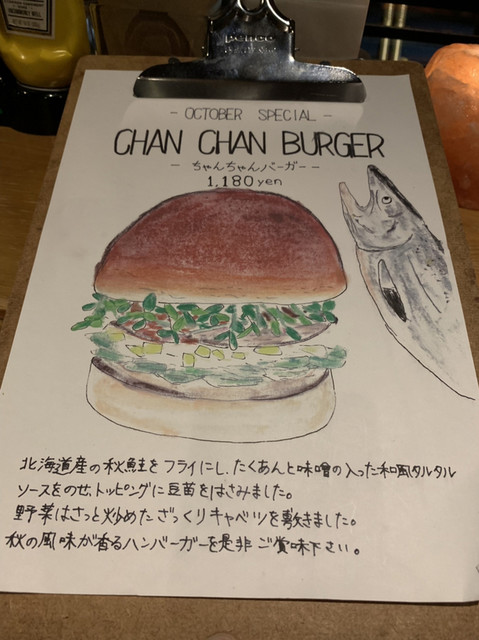 penco
- OCTOBER SPECIAL -
CHAN CHAN BURGER
- ちゃんちゃんバーガー -
1,180yen
北海道産の秋鮭をフライにし、たくあんと味噌の入った和風タルタル
ソースをのせ、トッピングに豆苗をはさみました。
野菜はさっと炒めたざっくりキャベツを敷きました。
秋の風味が香るハンバーガーを是非ご賞味下さい。